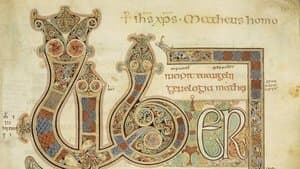 + ihs xps. Matheus homo
incipit euangelii
genelogia mathei
LIBER